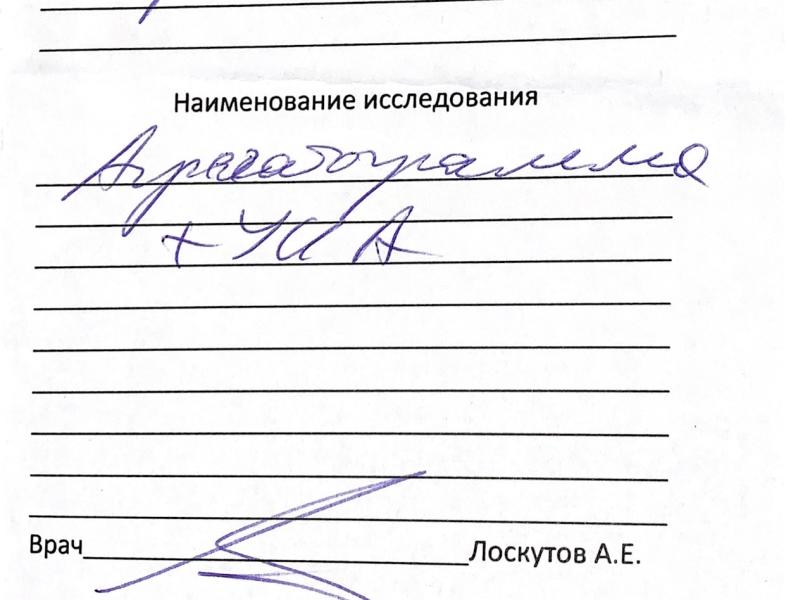 Наименование исследования
Агрегатограмма
+ УИА
Врач Лоскутов А.Е.